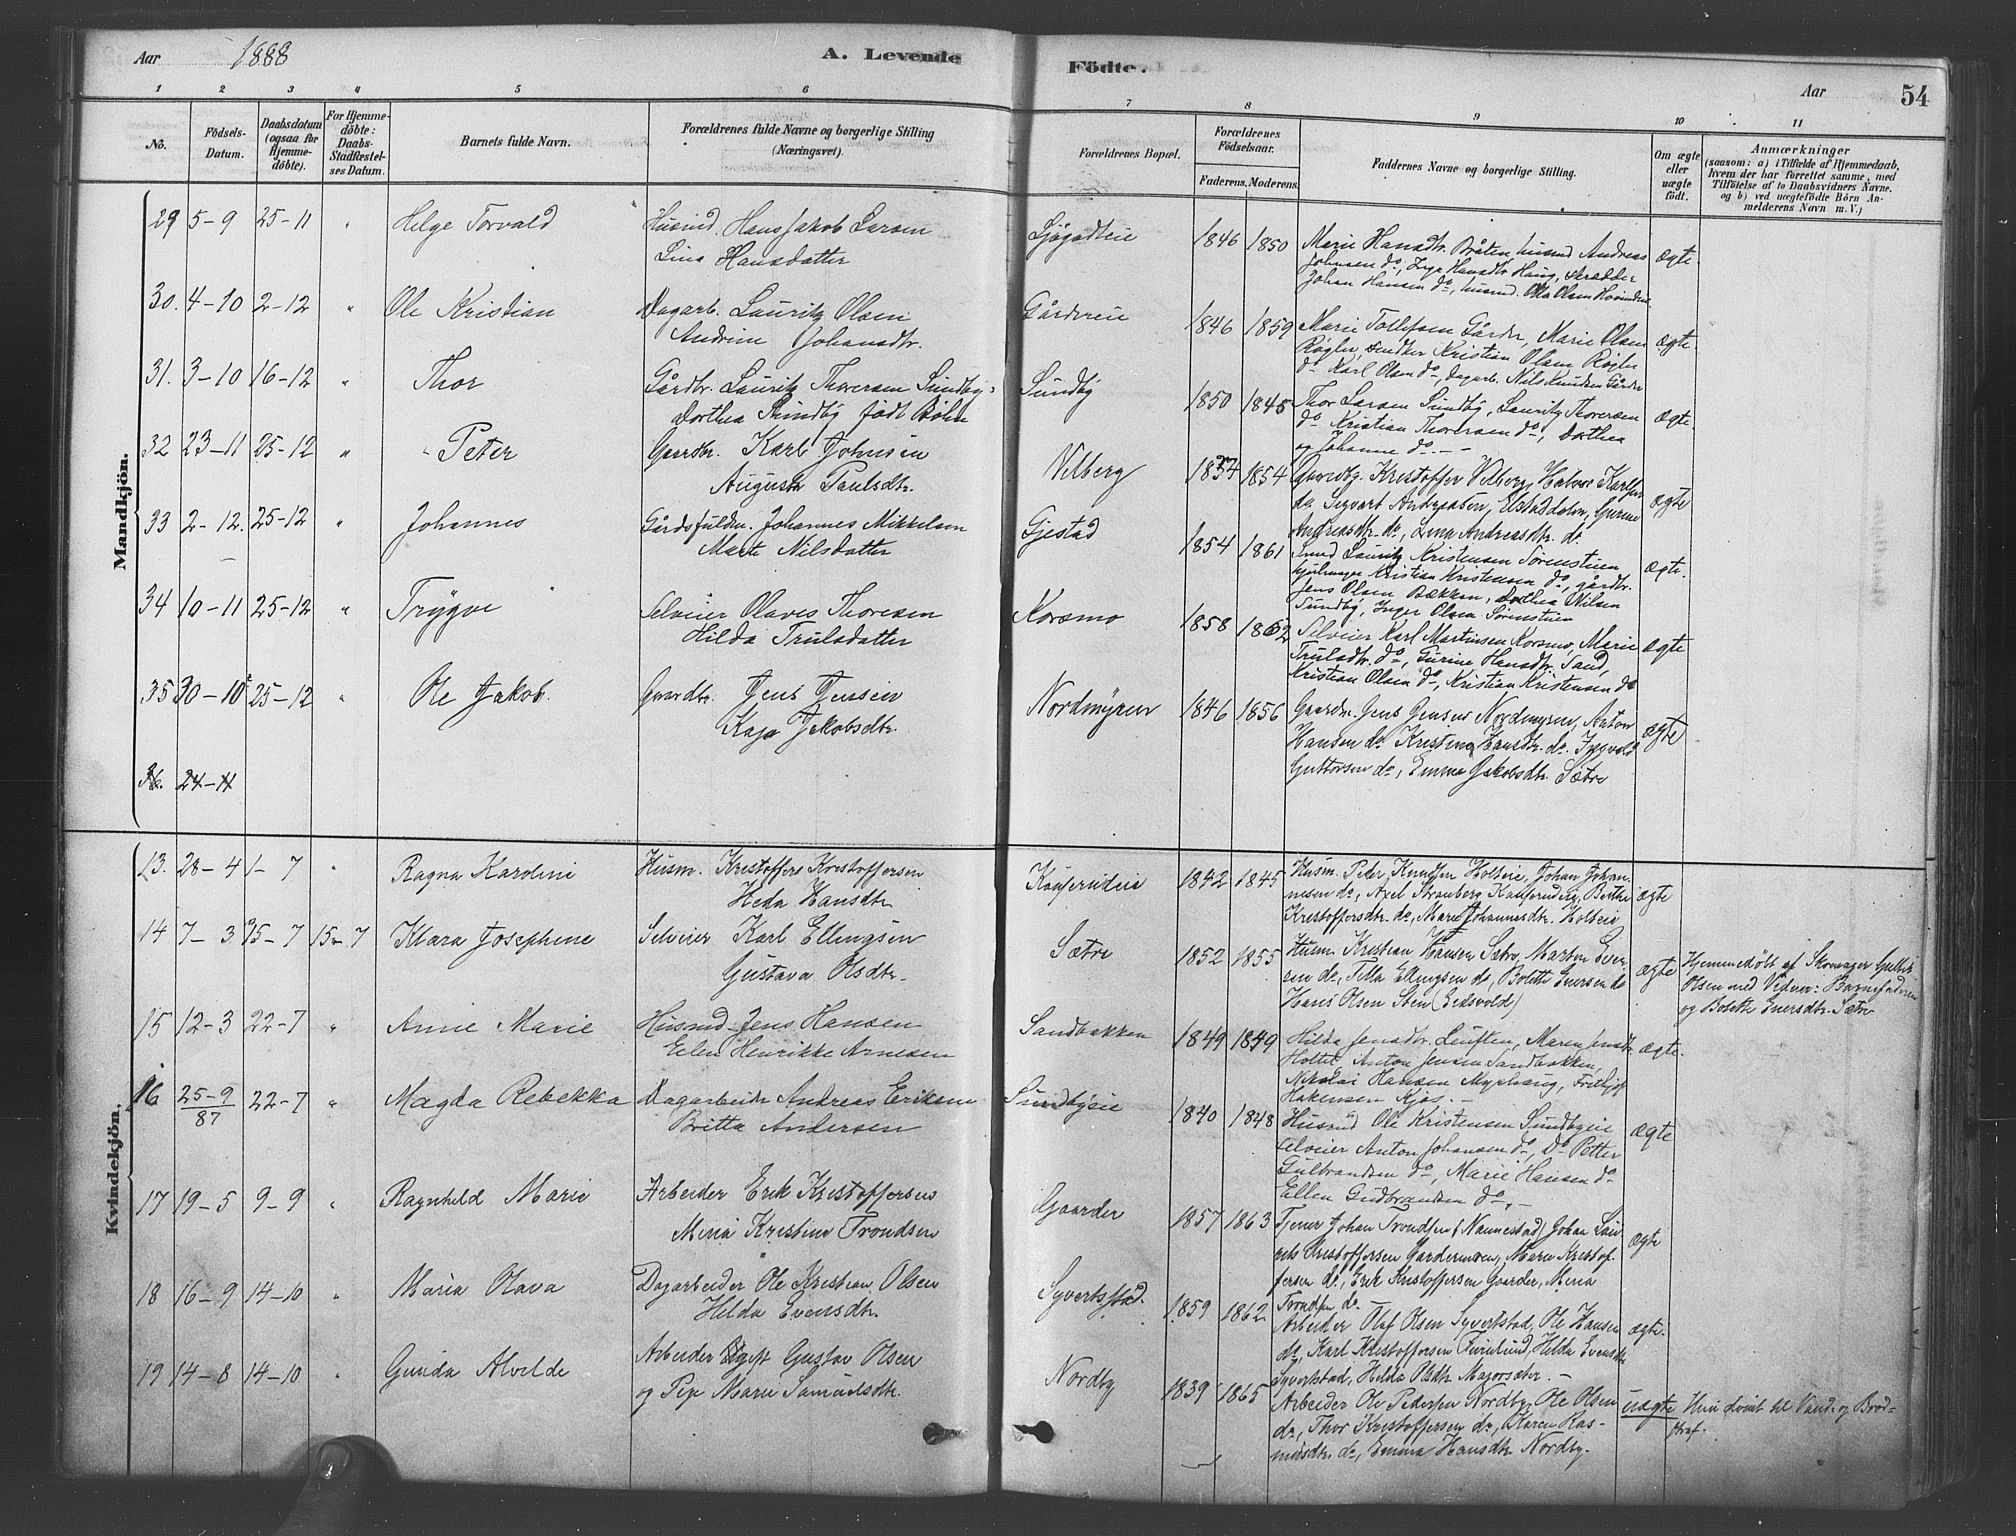 Aar 1888 A. Levende Födte. Aar 54
1 2 3 4 5 6 7 8 9 10 11
No.
Födsels-
Datum.
Daabsdatum
(ogsaa for
Hjemme-
döbte).
For Hjemme-
döbte:
Daabs-
Stadfæstel-
ses Datum.
Barnets fulde Navn.
Forældrenes fulde Navne og borgerlige Stilling
(Næringsvei).
Forældrenes Bopæl.
Forældrenes
Födselsaar.
Faderens. Moderens.
Faddernes Navne og borgerlige Stilling.
Om ægte
eller
uægte
födt.
Anmærkninger
(saasom: a) i Tilfælde af Hjemmedaab,
hvem der har forrettet samme, med
Tilföielse af to Daabsvidners Navne.
og b) ved uægtefödte Börn An-
melderens Navn m. V.)
Mandkjön.
29 5-9 25-11 " Helge Torvald
Husmd. Hans Jakob Larsen
Lina Hansdatter
1846 1850
Marie Hansdtr. Bråten, husmd Andreas
Johnsen do, Inga Hansdtr Haug, skrædder
Johan Hansen do, husmd. Ole Olsen
ægte.
30. 4-10 2-12 " Ole Kristian
Dagarb. Lauritz Olsen
Andrine Johansdtr.
Gårdereie
1846 1859
Marie Tollefsen Gårder, Marie Olsen
Røgler, Kristian Olsen Røgler
do Karl Olsen do, Dagarb. Nils Knudsen Gårder
ægte.
31. 3-10 16-12 " Thor
Gårdbr. Lauritz Thoresen Sundby
Dorthea Sundby født Bøhn
Sundby
1850 1845
Thor Larsen Sundby, Lauritz Thoresen
do Kristian Thoresen do, Dorthea
og Johanne do. -
ægte.
32 23-11 25-12 " Peter
Gaardbr. Karl Johnsen
Augusta Paulsdtr.
Vilberg
1854
Gaardbr. Kristoffer Vilberg, Halvor Karlsen
do Sigvart Andreassen, Gurine
Andreasdtr. do, Lina Andreasdtr. do.
ægte
33 2-12. 25-12 " Johannes
Gårdsfuldm. Johannes Mikkelsen
Marte Nilsdatter
Gjestad
1854 1861
Smed Lauritz Kristensen Sørensteien
hjulmager Kristian Kristensen do, gårdbr.
Jens Olsen Bækken, Dorthea Nilsen
Sundby, Inger Olsen Sørensteien
ægte.
34 10-11 25-12 " Trygve
Selveier Olaves Thoresen
Hilda Trulsdatter
Korsmo
1858 1862
Selveier Karl Martinsen Korsmo, Marie
Trulsdtr. do, Gurine Hansdtr. Sand,
Kristian Olsen do, Kristian Kristensen do
ægte
35 30-10 25-12 " Ole Jakob.
Gaardbr. Jens Jensen
Kaja Jakobsdtr.
Nordmyren
1846 1856
Gaardm. Jens Jensen Nordmyren, Anton
Hansen do. Kristine Hansdtr. do. Ingvald
Guttorsen do, Emma Jakobsdtr. Sætre
ægte
36. 24-11
Kvindekjön.
13. 28-4 1-7 " Ragna Karoline
Husm. Kristoffer Kristoffersen
Heda Hansdtr
1842 1845
Husm. Peter Knudsen Holteie, Johan Johan-
nesen do, Axel Stranberg, Berthe
Kristoffersdtr. do, Maren Johannesdtr. Holteie
ægte
14 7-3 15-7 15-7 Klara Josephine
Selveier Karl Ellingsen
Gustava Olsdtr.
Sætre
1852 1855
Husm. Kristian Hansen Sætre, Martin Ever-
sen do, Tilla Ellingsen do, Bolette Eversen do
Hans Olsen Sten (Eidsvold)
ægte
Hjemmedøbt af Skomager
Olsen med Vidner: Barnefaderen
og Bolette Eversdtr. Sætre
15 12-3 22-7 " Anne Marie
Husmd. Jens Hansen
Elen Henrikke Arnesen
Sandbakken
1849 1849
Hilda Jensdtr. Lauften, Maren Jensdtr.
Holtet, Anton Jensen Sandbakken,
Nikolai Hansen Myrhaug, Frithjof
Hakensen Kjos. -
ægte.
16 25-9/87 22-7 " Magda Rebekka
Dagarbeider Andreas Eriksen
Britta Andersen
Sundbyeie
1840 1848
Husmd Ole Kristensen Sundbyeie
Selveier Anton Johansen do, Do Petter
Gulbrandsen do, Marie Hansen do
Ellen Gudbrandsen do. -
ægte
17 19-5 9-9 " Ragnhild Marie
Arbeider Erik Kristoffersen
Mina Kristine Trondsen
Gaarder
1857 1863
Tjener Johan Trondsen (Nannestad) Johan Lau-
rits Kristoffersen Gardermoen, Maren Kristof-
fersen do, Erik Kristoffersen Gaarder, Maria
Trondsen do.
ægte
18 16-9 14-10 " Maria Olava
Dagarbeider Ole Kristian Olsen
Hilda Evensdtr.
Syvertsstad.
1859 1862
Arbeider Olaf Olsen Syvertstad, Ole Hansen
do, Karl Kristoffersen Furulund, Hilda Evensdtr
Syvertstad, Hilda Olsdtr. Majorsæter. -
ægte.
19 14-8 14-10 " Gunda Alvilde
Arbeider Ugift Gustav Olsen
og Pige Maren Samuelsdtr.
Nordby
1839 1865
Arbeider Ole Pedersen Nordby, Ole Olsen
do, Thor Kristoffersen do, Maren Ras-
musdtr. do, Emma Hansdtr Nordby.
uægte
Hun dømt til Vand og Brød-
straf.